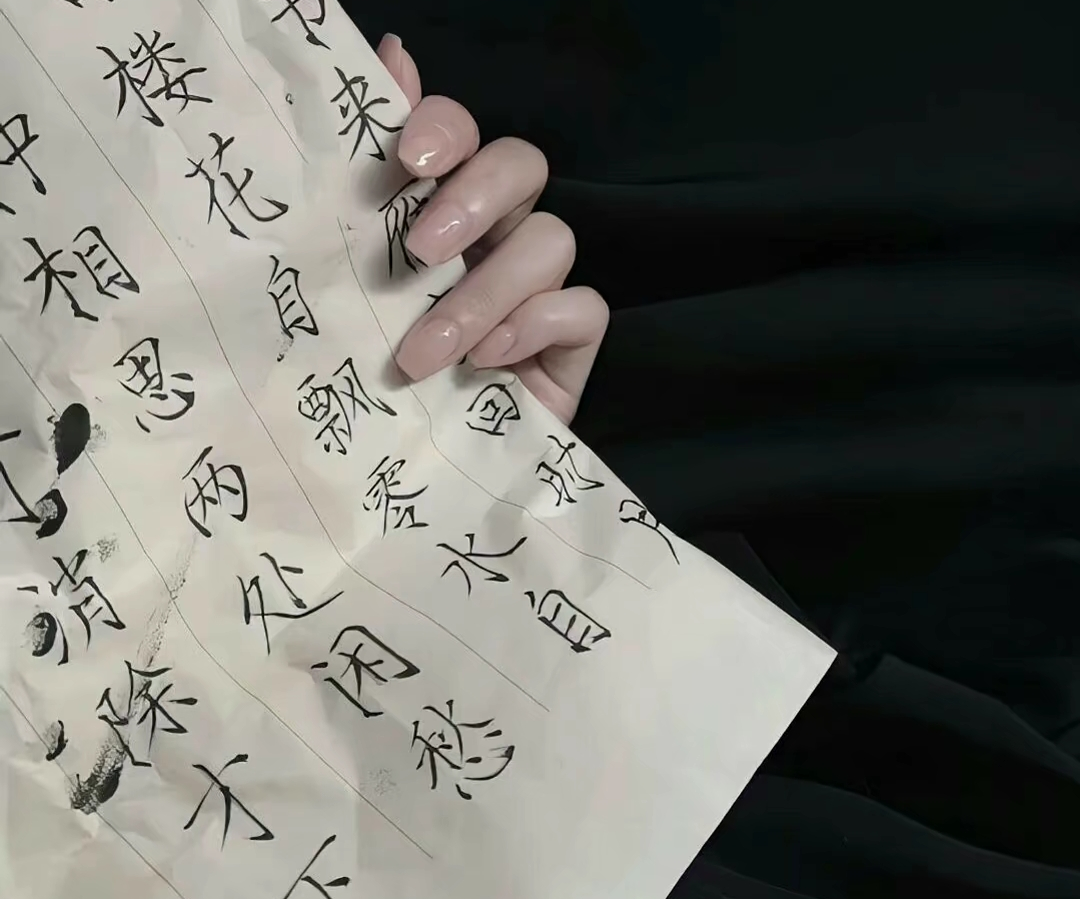 来雁回时月
楼花自飘零水自
种相思两处闲愁
消除才下